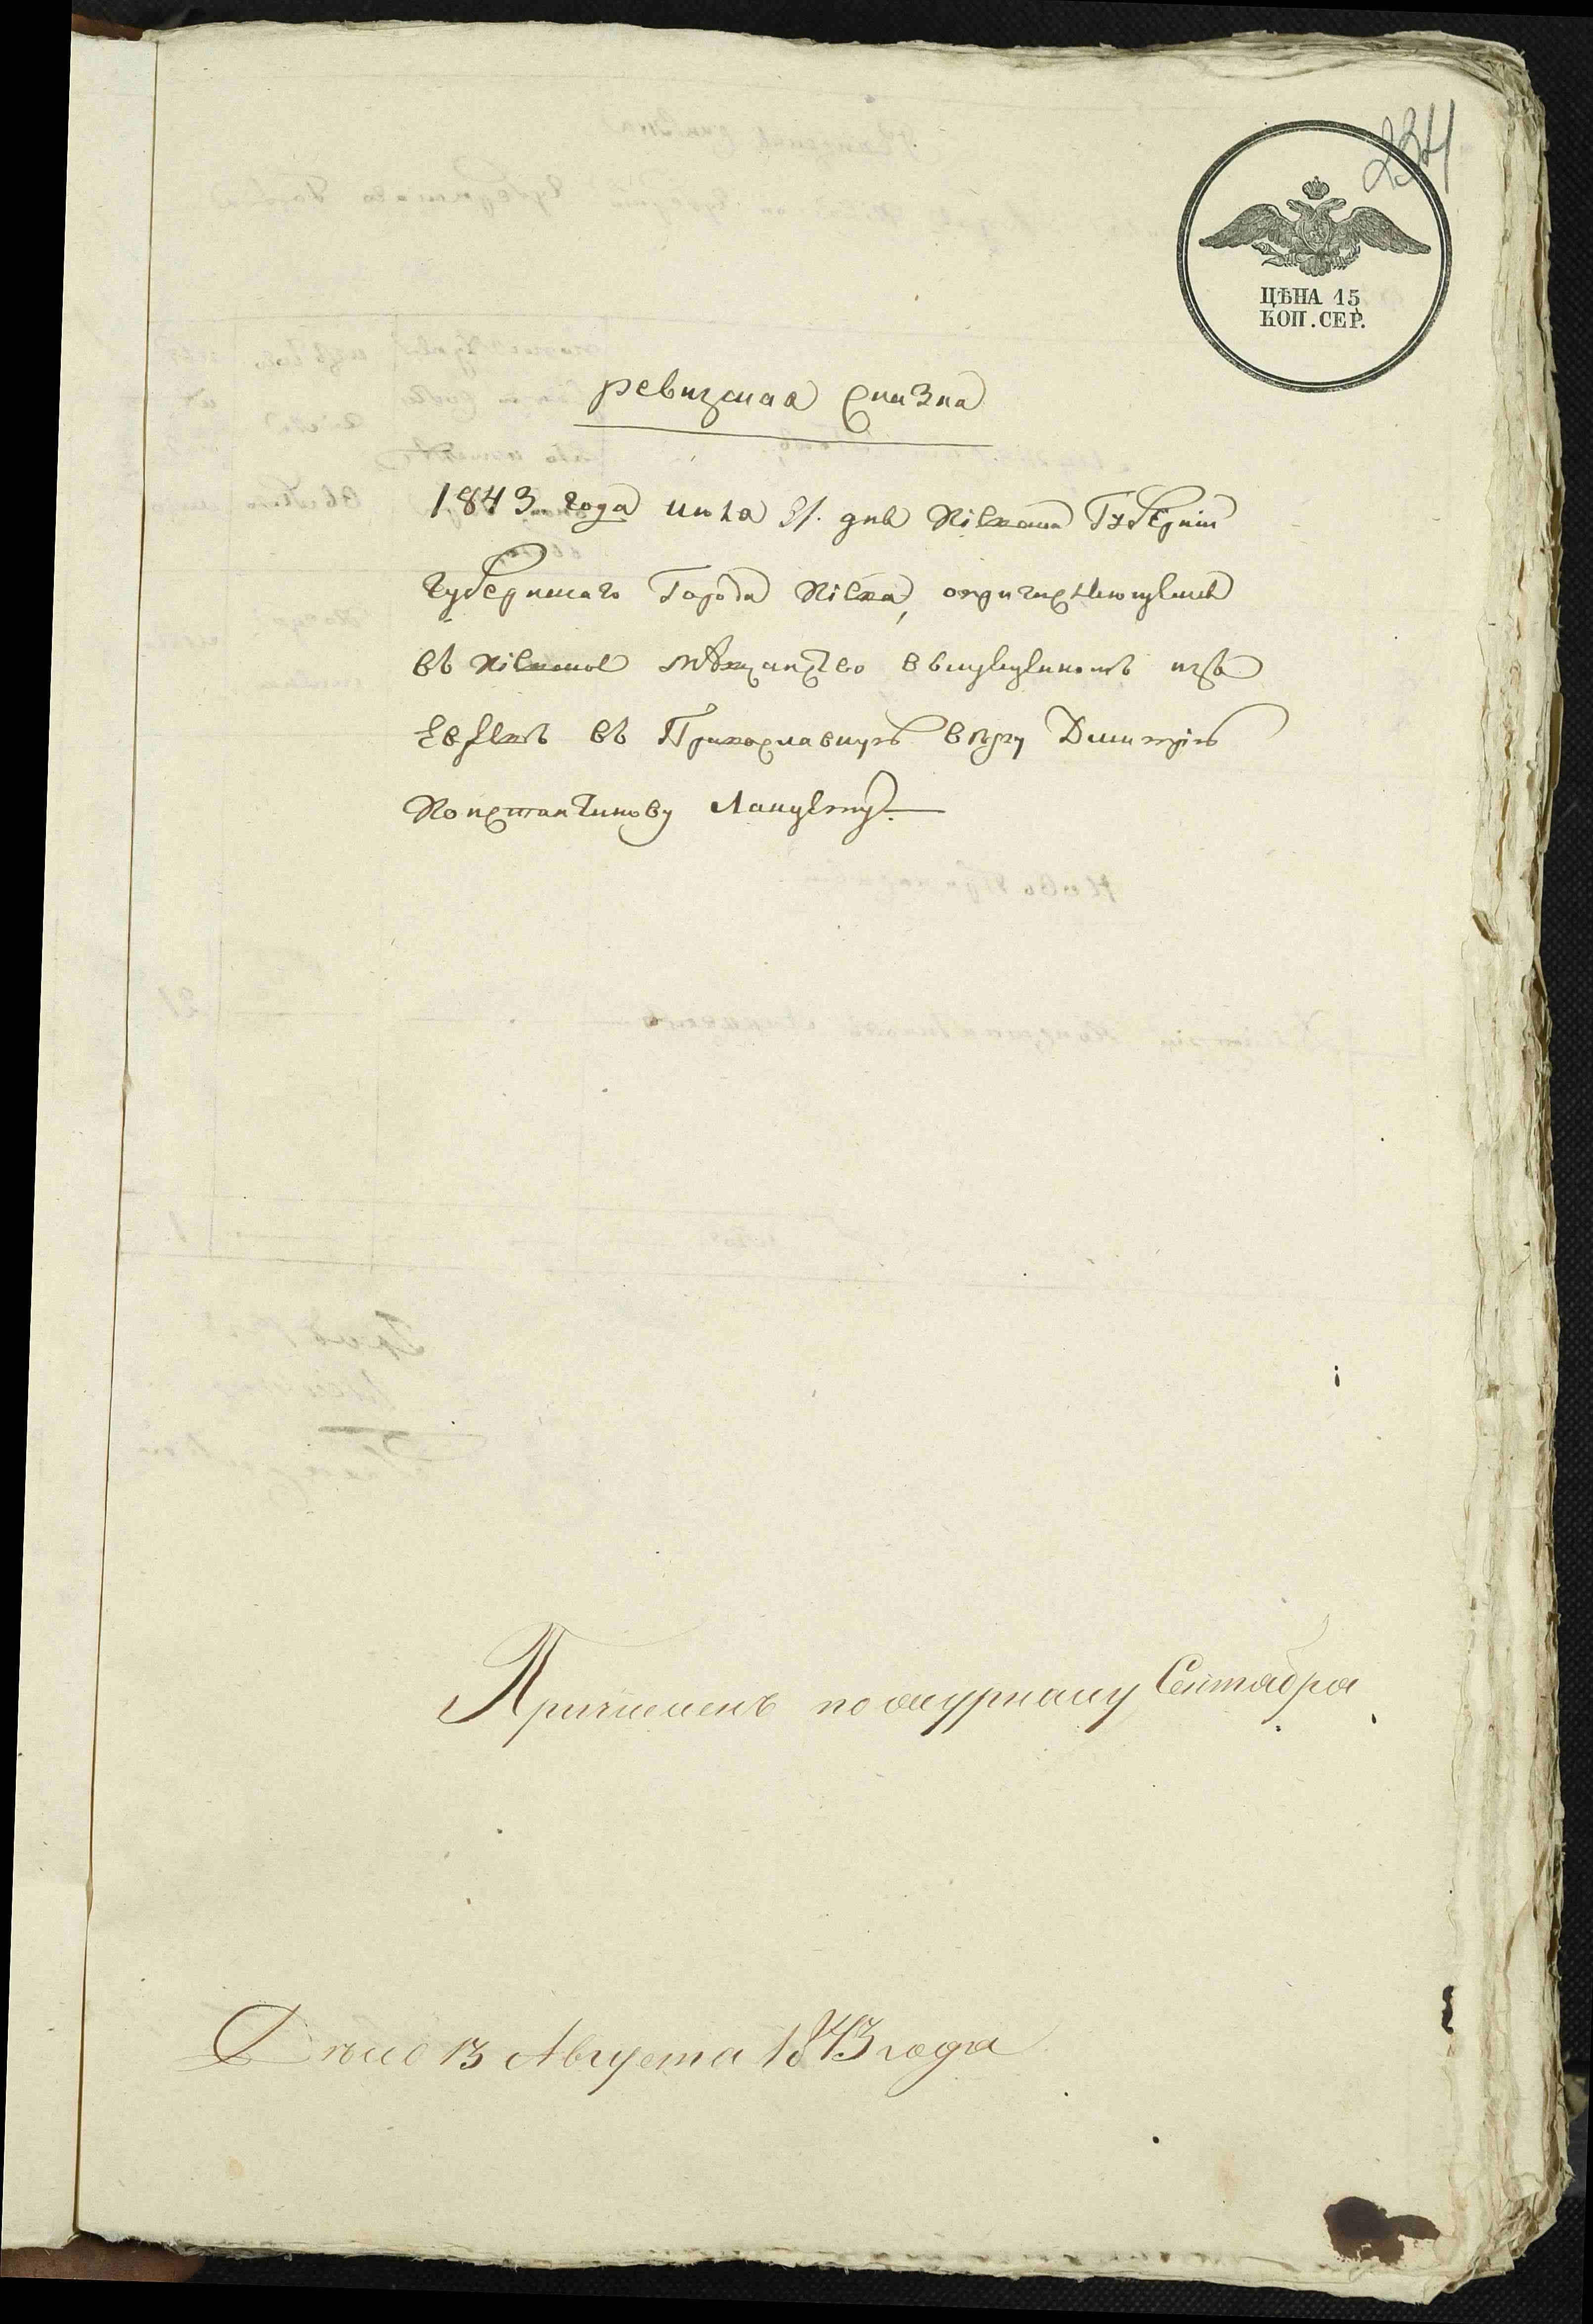 234
ЦѢНА 15
КОП. СЕР.
ревизская Сказка
1843. года июля 31. дня Кіевской Губерніи
губернскаго Города Кіева, о причисляющемся
въ Кіевское мѣщанство выкрещенномъ изъ
Евреевъ въ Православную вѣру Дмитріѣ
Константинову
Причисленъ по журналу Сентября
Дѣло 13 Августа 1843 года